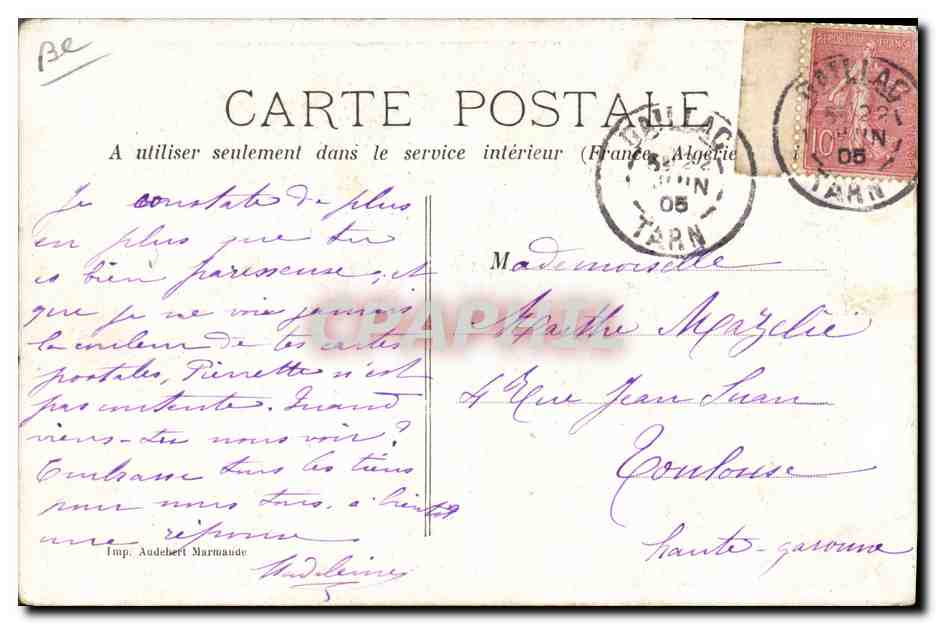 Be
CARTE POSTALE
A utiliser seulement dans le service intérieur (France, Algérie
REPUBLIQUE FRANÇAISE
10
GAILLAC
5E 22
JUIN
05
TARN
GAILLAC
5E 22
JUIN
05
TARN
Je constate de plus
en plus que tu
es bien paresseuse, et
que je ne vois jamais
la couleur de tes cartes
postales, Pierrette n'est
pas contente. Quand
viens-tu nous voir?
Embrasse tous les tiens
pour nous tous. à bientôt
une réponse
Madeleine
Mademoiselle
Marthe Mazelié
4 Rue Jean Suau
Toulouse
haute-garonne
CPAPHIL
Imp. Audebert Marmaude